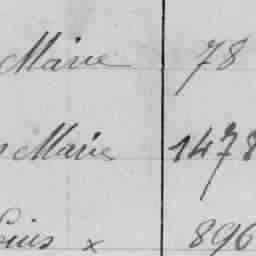 Marie 78
Marie 1478
Louis x 896